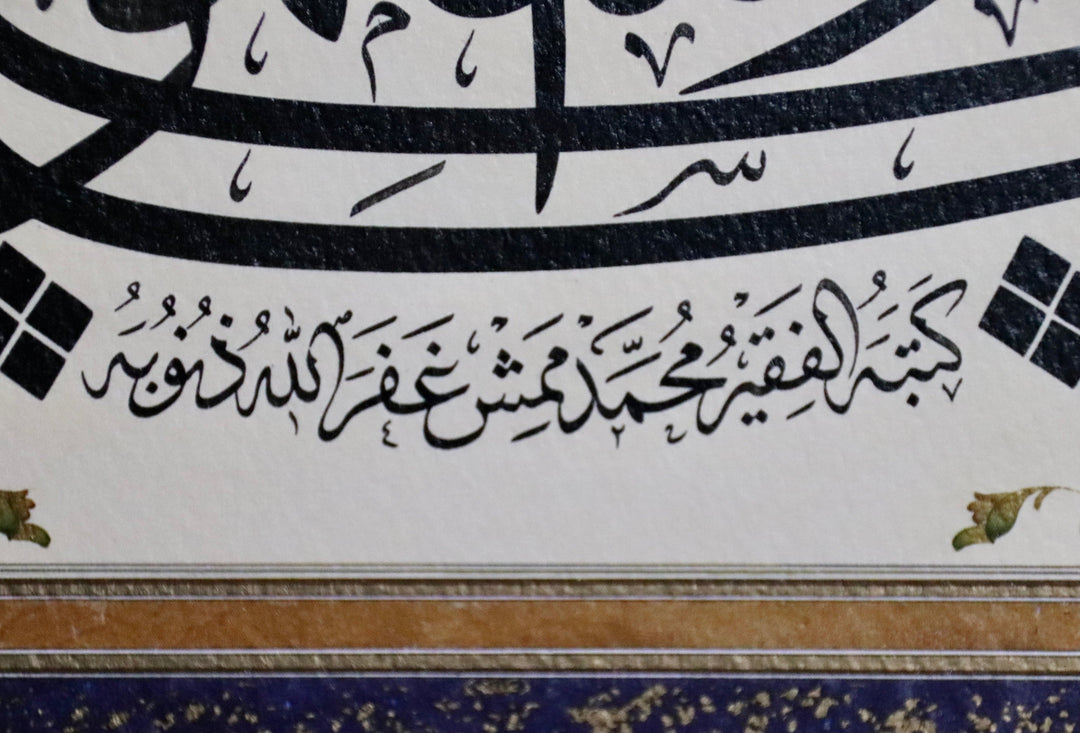 كَتَبَهُ الفَقِيرُ مُحَمَّد مَمِش غَفَرَ اللهُ ذُنُوبَهُ